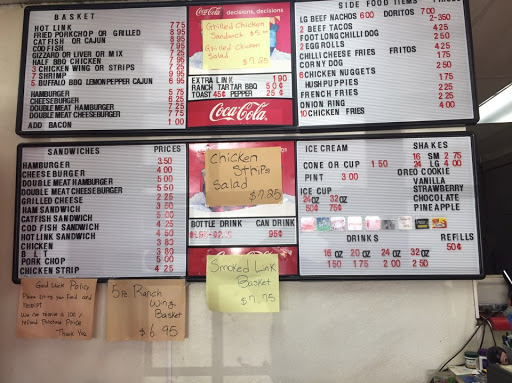 BASKET
HOT LINK 7 75
FRIED PORKCHOP OR GRILLED 8 95
CATFISH OR CAJUN 8 95
COD FISH 7 25
GIZZARD OR LIVER OR MIX 7 25
HALF BBQ CHICKEN 7 95
3 CHICKEN WING OR STRIPS 7 25
7 SHRIMP 8 95
5 BUFFALO BBQ LEMON PEPPER CAJUN 6 95
HAMBURGER 5 75
CHEESEBURGER 6 25
DOUBLE MEAT HAMBURGER 7 25
DOUBLE MEAT CHEESEBURGER 7 75
ADD BACON 1 00
Coca-Cola decisions, decisions
Grilled Chicken
Sandwich
Grilled Chicken
Salad
$7.25
EXTRA LINK 1 90
RANCH TARTAR BBQ 50¢
TOAST 45¢ PEPPER 25¢
Coca-Cola
SIDE FOOD ITEMS
LG BEEF NACHOS 6 00 DORITOS 7 00
2 BEEF TACOS
FOOT LONG CHILLI DOG
2 EGG ROLLS
CHILLI CHEESE FRIES FRITOS
CORNY DOG
6 CHICKEN NUGGETS
HUSH PUPPIES
FRENCH FRIES
ONION RING
10 CHICKEN FRIES
SANDWICHES PRICES
HAMBURGER 3 50
CHEESE BURGER 4 00
DOUBLE MEAT HAMBURGER 5 00
DOUBLE MEAT CHEESEBURGER 5 50
GRILLED CHEESE
HAM SANDWICH
CATFISH SANDWICH
COD FISH SANDWICH
HOT LINK SANDWICH
CHICKEN
B L T
PORK CHOP 5 00
CHICKEN STRIP 4 25
Chicken
Strips
Salad
$7.25
BOTTLE DRINK CAN DRINK
95¢
ICE CREAM
CONE OR CUP 1 50
PINT 3 00
ICE CUP
24 OZ 32 OZ
50¢ 75¢
SHAKES
16 SM 2 75
24 LG 4 00
OREO COOKIE
VANILLA
STRAWBERRY
CHOCOLATE
PINEAPPLE
DRINKS REFILLS
50¢
16 OZ 20 OZ 24 OZ 32 OZ
1 50 1 75 2 00 2 50
Good Luck Policy
Thank You
5pc Ranch
Wing
Basket
$6.95
Smoked Link
Basket
$7.75